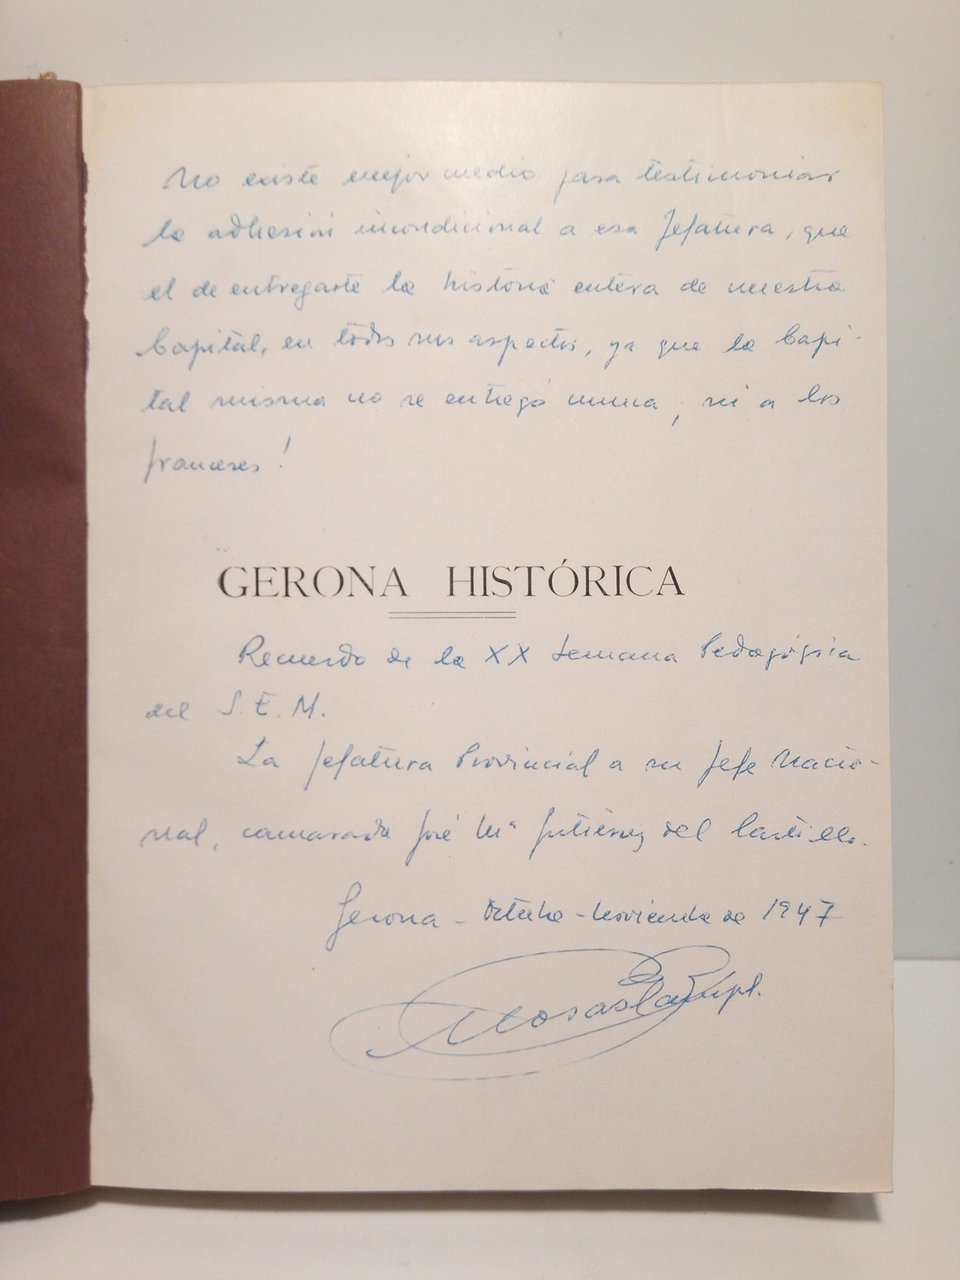 No existe mejor medio para testimoniar
la adhesión incondicional a esa Jefatura, que
el de entregarte la historia entera de nuestra
Capital, en todos sus aspectos, ya que la Capi-
tal misma no se entregó nunca, ni a los
franceses!
GERONA HISTÓRICA
Recuerdo de la XX Semana Pedagógica
del S.E.M.
La Jefatura Provincial a su Jefe Nacio-
nal, camarada José Mª Gutiérrez del Castillo.
Gerona - Octubre - Noviembre de 1947